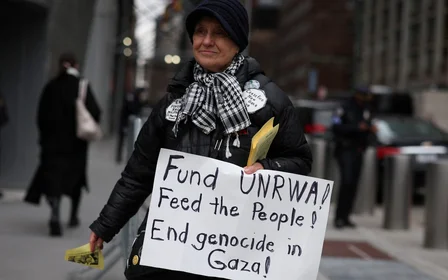 Fund UNRWA!
Feed the People!
End genocide in
Gaza!